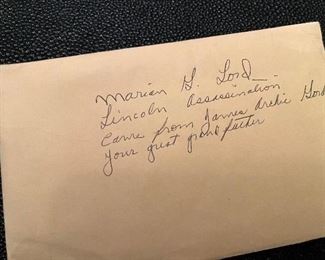 Marian G. Lord
Lincoln Assassination
Came from James Archie Gord
your great grand father